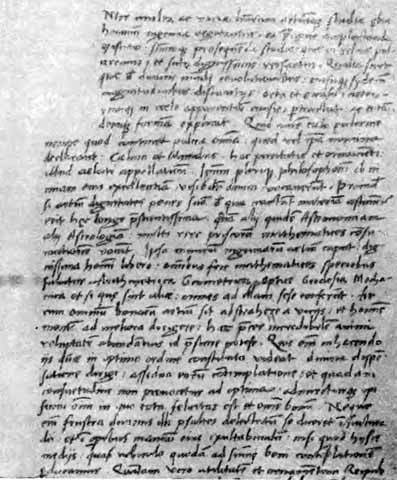 Inter multa ac varia literarum artiumque studia quibus
hominum ingenia vegetantur, ea amplectenda
existimo, summoque prosequenda studio, que in rebus pul-
cerrimis et scitu dignissimis versantur. Qualia sunt
que de divinis mundi revolutionibus, cursuque syderum
magnitudinibus distantijs, ortu et occasu, cetero-
rumque in celo apparentium causis pertractant, ac totam
denique formam explicant. Quid autem celo pulcrius
nempe quod continet pulcra omnia: quod vel ipsa nomina
declarant, Celum et Mundus, hoc puritatis et ornamenti
illud celati appellatione. Ipsum plerique philosophorum ob ni-
miam eius excellentiam visibilem deum vocaverunt. Proinde
si artium dignitates penes suam de qua tractant materiam estimentur
erit hec longe prestantissima, quam alij quidem Astronomiam
alij Astrologiam, multi vero priscorum mathematices consu-
mationem vocant. Ipsa nimirum ingenuarum artium caput, dig-
nissima homini libero, omnibus fere mathematices speciebus
fulcitur, Arithmetica Geometrica, Optice Geodesia Mecha-
nica et si que sint alie: omnes ad illam sese conferunt. At
cum omnium bonarum artium sit abstrahere a vitijs, et hominis
mentem ad meliora dirigere: hec preter incredibilem animi
voluptatem abundantius id prestare potest. Quis enim inherendo
ijs que in optimo ordine constituta videat divina dispen-
satione dirigi: assidua eorum contemplatione et quadam
consuetudine non provocetur ad optima: admireturque opi-
ficem omnium in quo tota felicitas est et omne bonum. Neque
enim frustra divinus ille psaltes delectatum se diceret in factura
dei: et in operibus manuum eius exultabundum: nisi quod hysce
medijs, quasi vehiculo quodam ad summi boni contemplationem
perducamur. Quantam vero utilitatem et ornamentum Reipub